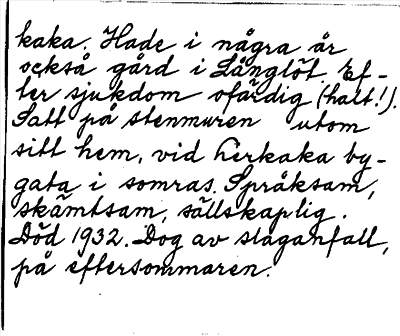 kaka. Hade i några år
också gård i Långlöt. Ef-
ter sjukdom ofärdig (halt!).
Satt på stenmuren utom
sitt hem, vid Lerkaka by-
gata i somras. Språksam,
skämtsam, sällskaplig.
Död 1932. Dog av slaganfall,
på eftersommaren.